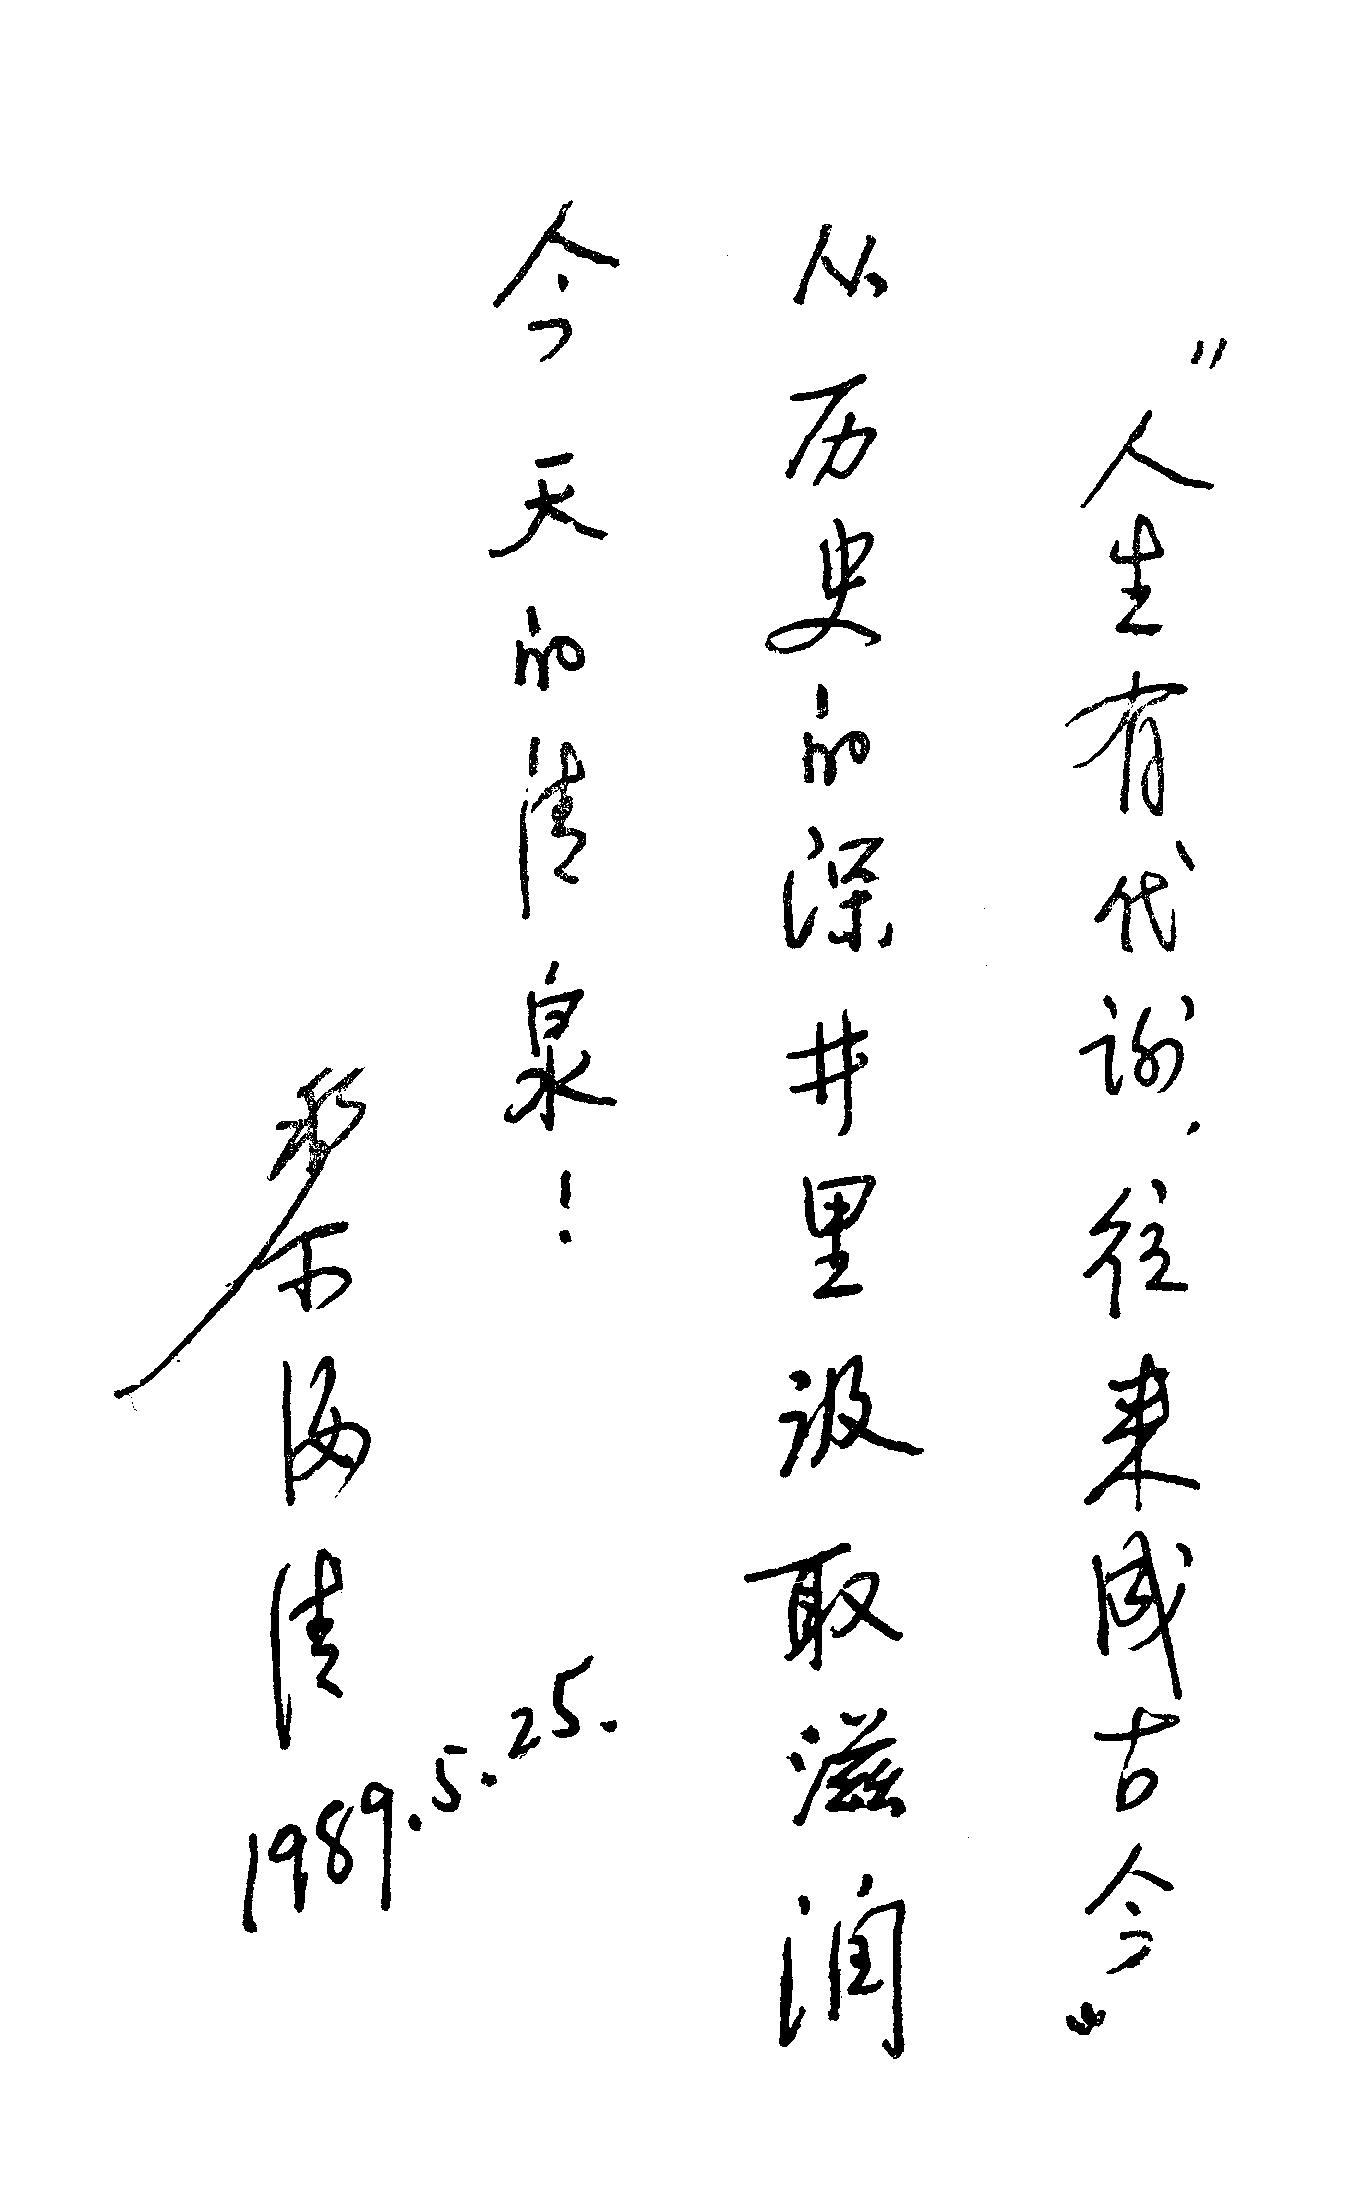 “人生有代谢，往来成古今”
从历史的深井里汲取滋润
今天的清泉！
海清
1989.5.25.